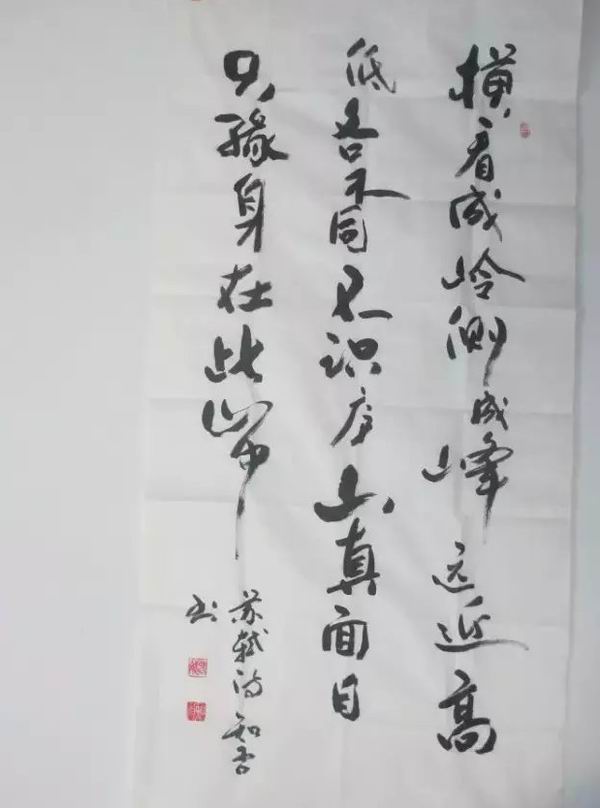 横看成岭侧成峰远近高
低各不同不识庐山真面目
只缘身在此山中
苏轼诗知否
书